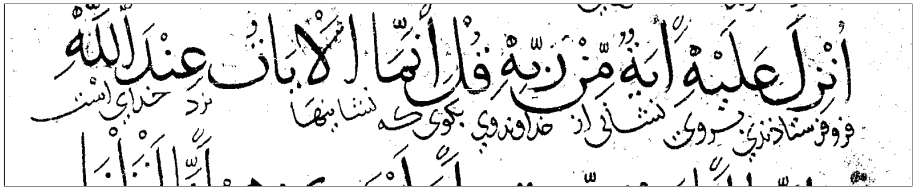 أُنْزِلَ عَلَيْهِ آيَةٌ مِّنْ رَبِّهِ قُلْ إِنَّمَا الْآيَاتُ عِنْدَ اللَّهِ
فروفرستادندی بروی نشانی از خداوندوی بگوی که نشانیها نزد خدای است